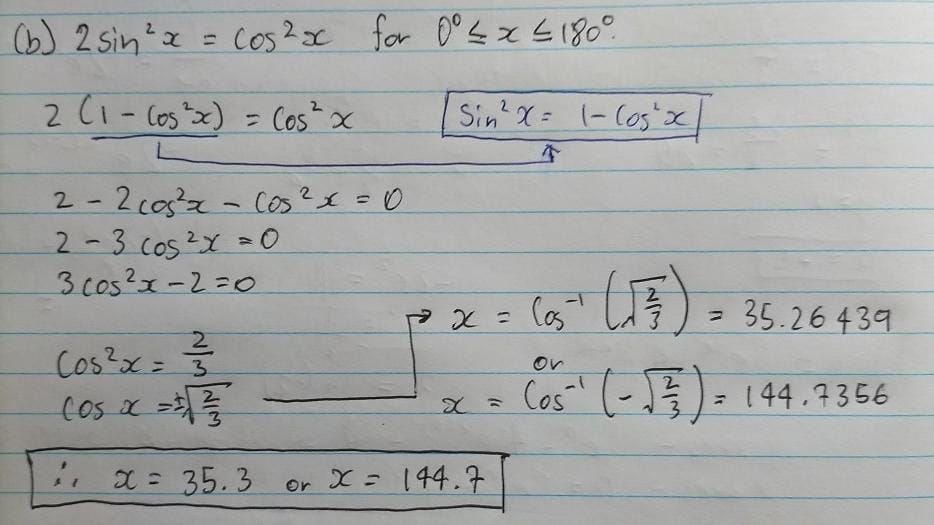 (b) 2sin²x = cos²x for 0° ≤ x ≤ 180°.
2 (1 - cos²x) = cos²x
sin²x = 1 - cos²x
2 - 2cos²x - cos²x = 0
2 - 3 cos²x = 0
3cos²x - 2 = 0
cos²x = 2/3
cos x = ±√(2/3)
x = cos⁻¹ (√(2/3)) = 35.26439
or
x = cos⁻¹ (-√(2/3)) = 144.7356
∴ x = 35.3 or x = 144.7